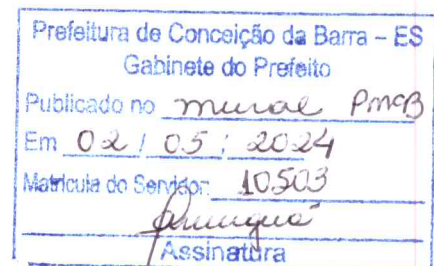 Prefeitura de Conceição da Barra – ES
Gabinete do Prefeito
Publicado no mural PMCB
Em 02 / 05 / 2024
Matrícula do Servidor: 10503
Assinatura